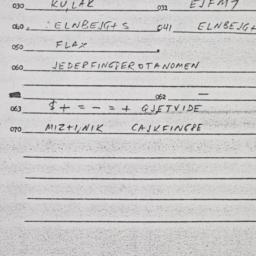 030 KULAK 032 EJFM7
040 ELNBEJG+S 041 ELNBEJG+
050 FLAX
060 JEDEPFINGIEROTANOMEN
062 —
063 $ + = - = + GJETVIDE
070 MIZ+I,NIK CAJKFINGPE